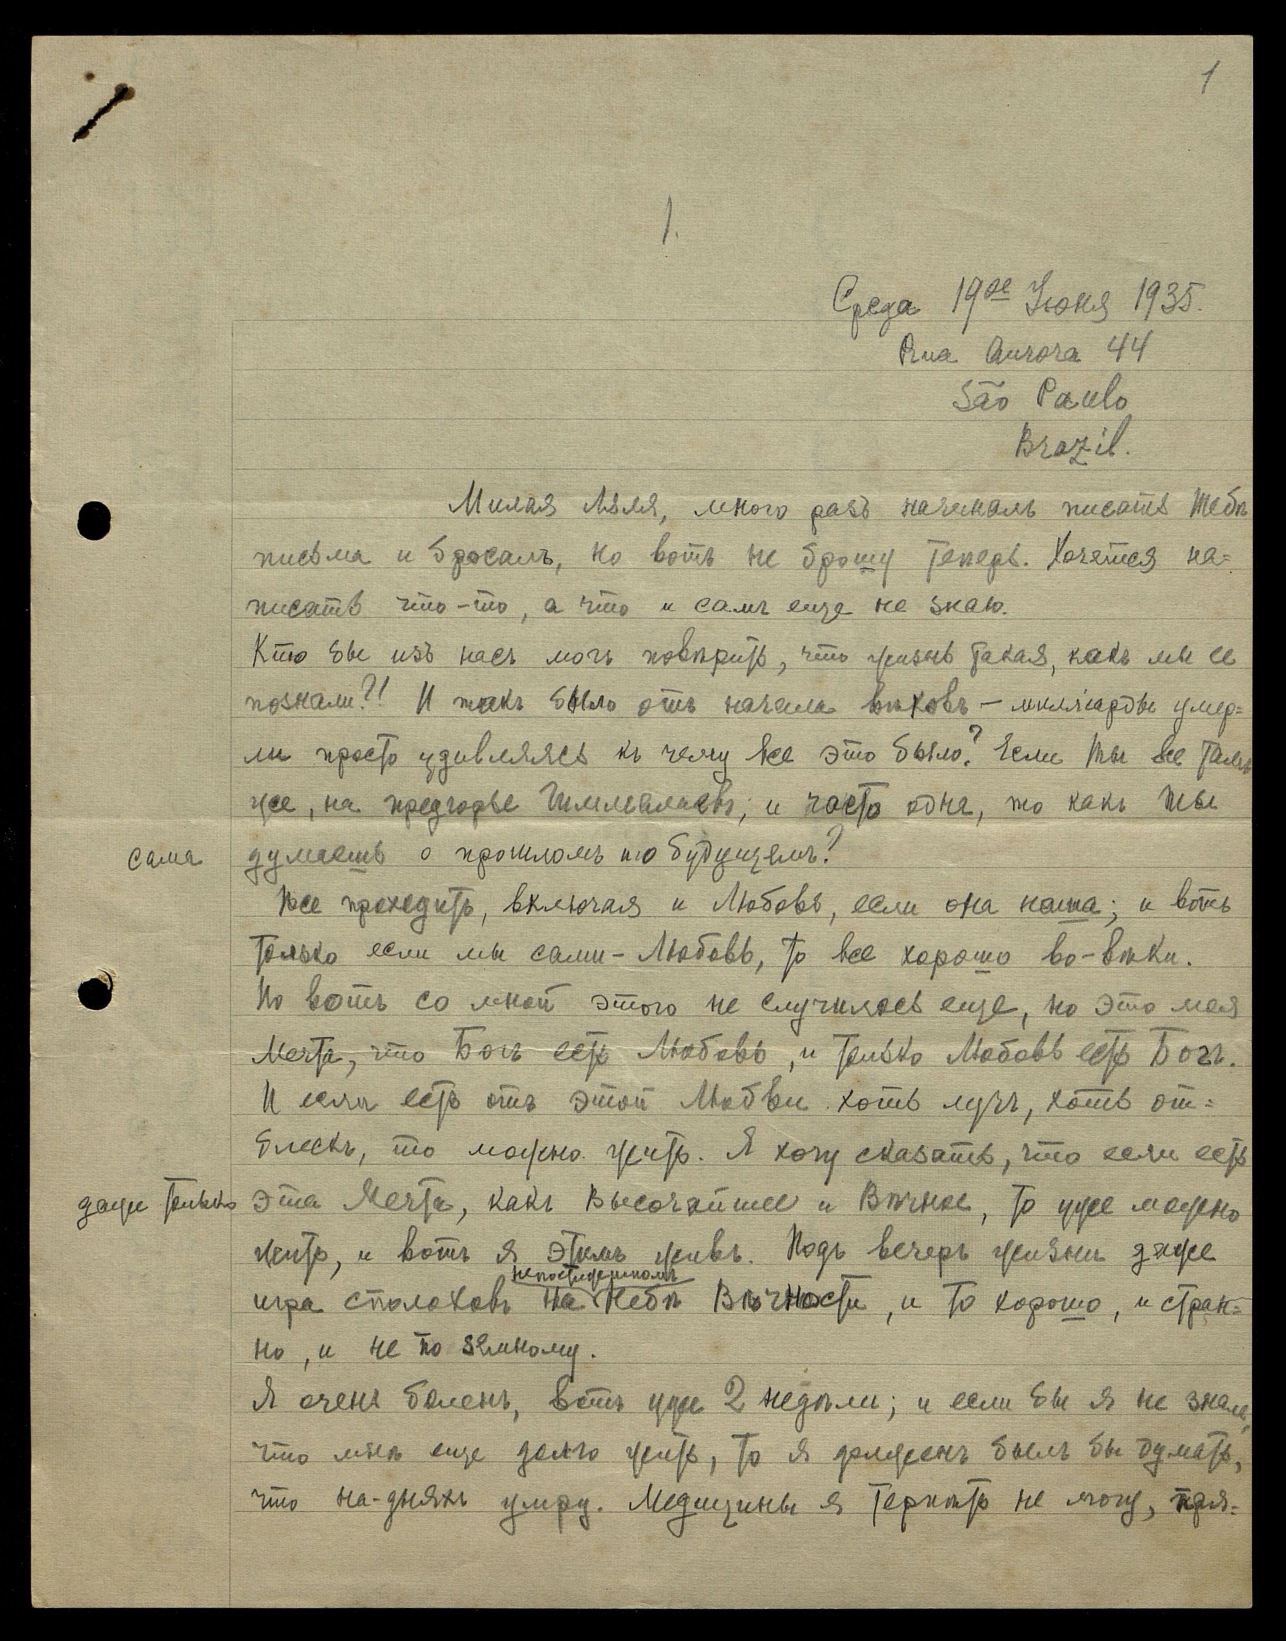 1
1.
Среда 19ое Июня 1935.
Rua Aurora 44
São Paulo
Brazil.
Милая Ляля, много разъ начиналъ писать Тебѣ
письма и бросалъ, но вотъ не брошу теперь. Хочется на=
писать что-то, а что и самъ еще не знаю.
Кто бы изъ насъ могъ повѣрить, что жизнь такая, какъ мы ее
познали?! И такъ было отъ начала вѣковъ – миллiарды умер=
ли просто удивляясь къ чему все это было? Если Ты все тамъ
же, на предгорье Гималаевъ, и часто одна, то какъ Ты
сама думаешь о прошломъ и о будущемъ?
Все проходитъ, включая и Любовь, если она наша; и вотъ
только если мы сами – Любовь, то все хорошо во-вѣки.
Но вотъ со мной этого не случилось еще, но это моя
Мечта, что Богъ есть Любовь, и только Любовь есть Богъ.
И если есть отъ этой Любви хоть лучъ, хоть от=
блескъ, то можно жить. Я хочу сказать, что если есть
даже только эта Мечта, какъ Высочайшее и Вѣчное, то уже можно
жить, и вотъ я этимъ живъ. Подъ вечеръ жизни даже
непостижимомъ
игра сполоховъ на Небѣ Вѣчности, и то хорошо, и стран=
но, и не по земному.
Я очень боленъ, вотъ уже 2 недѣли; и если бы я не зналъ,
что мнѣ еще долго жить, то я долженъ былъ бы думать,
что на-дняхъ умру. Медицины я терпѣть не могу, пря=